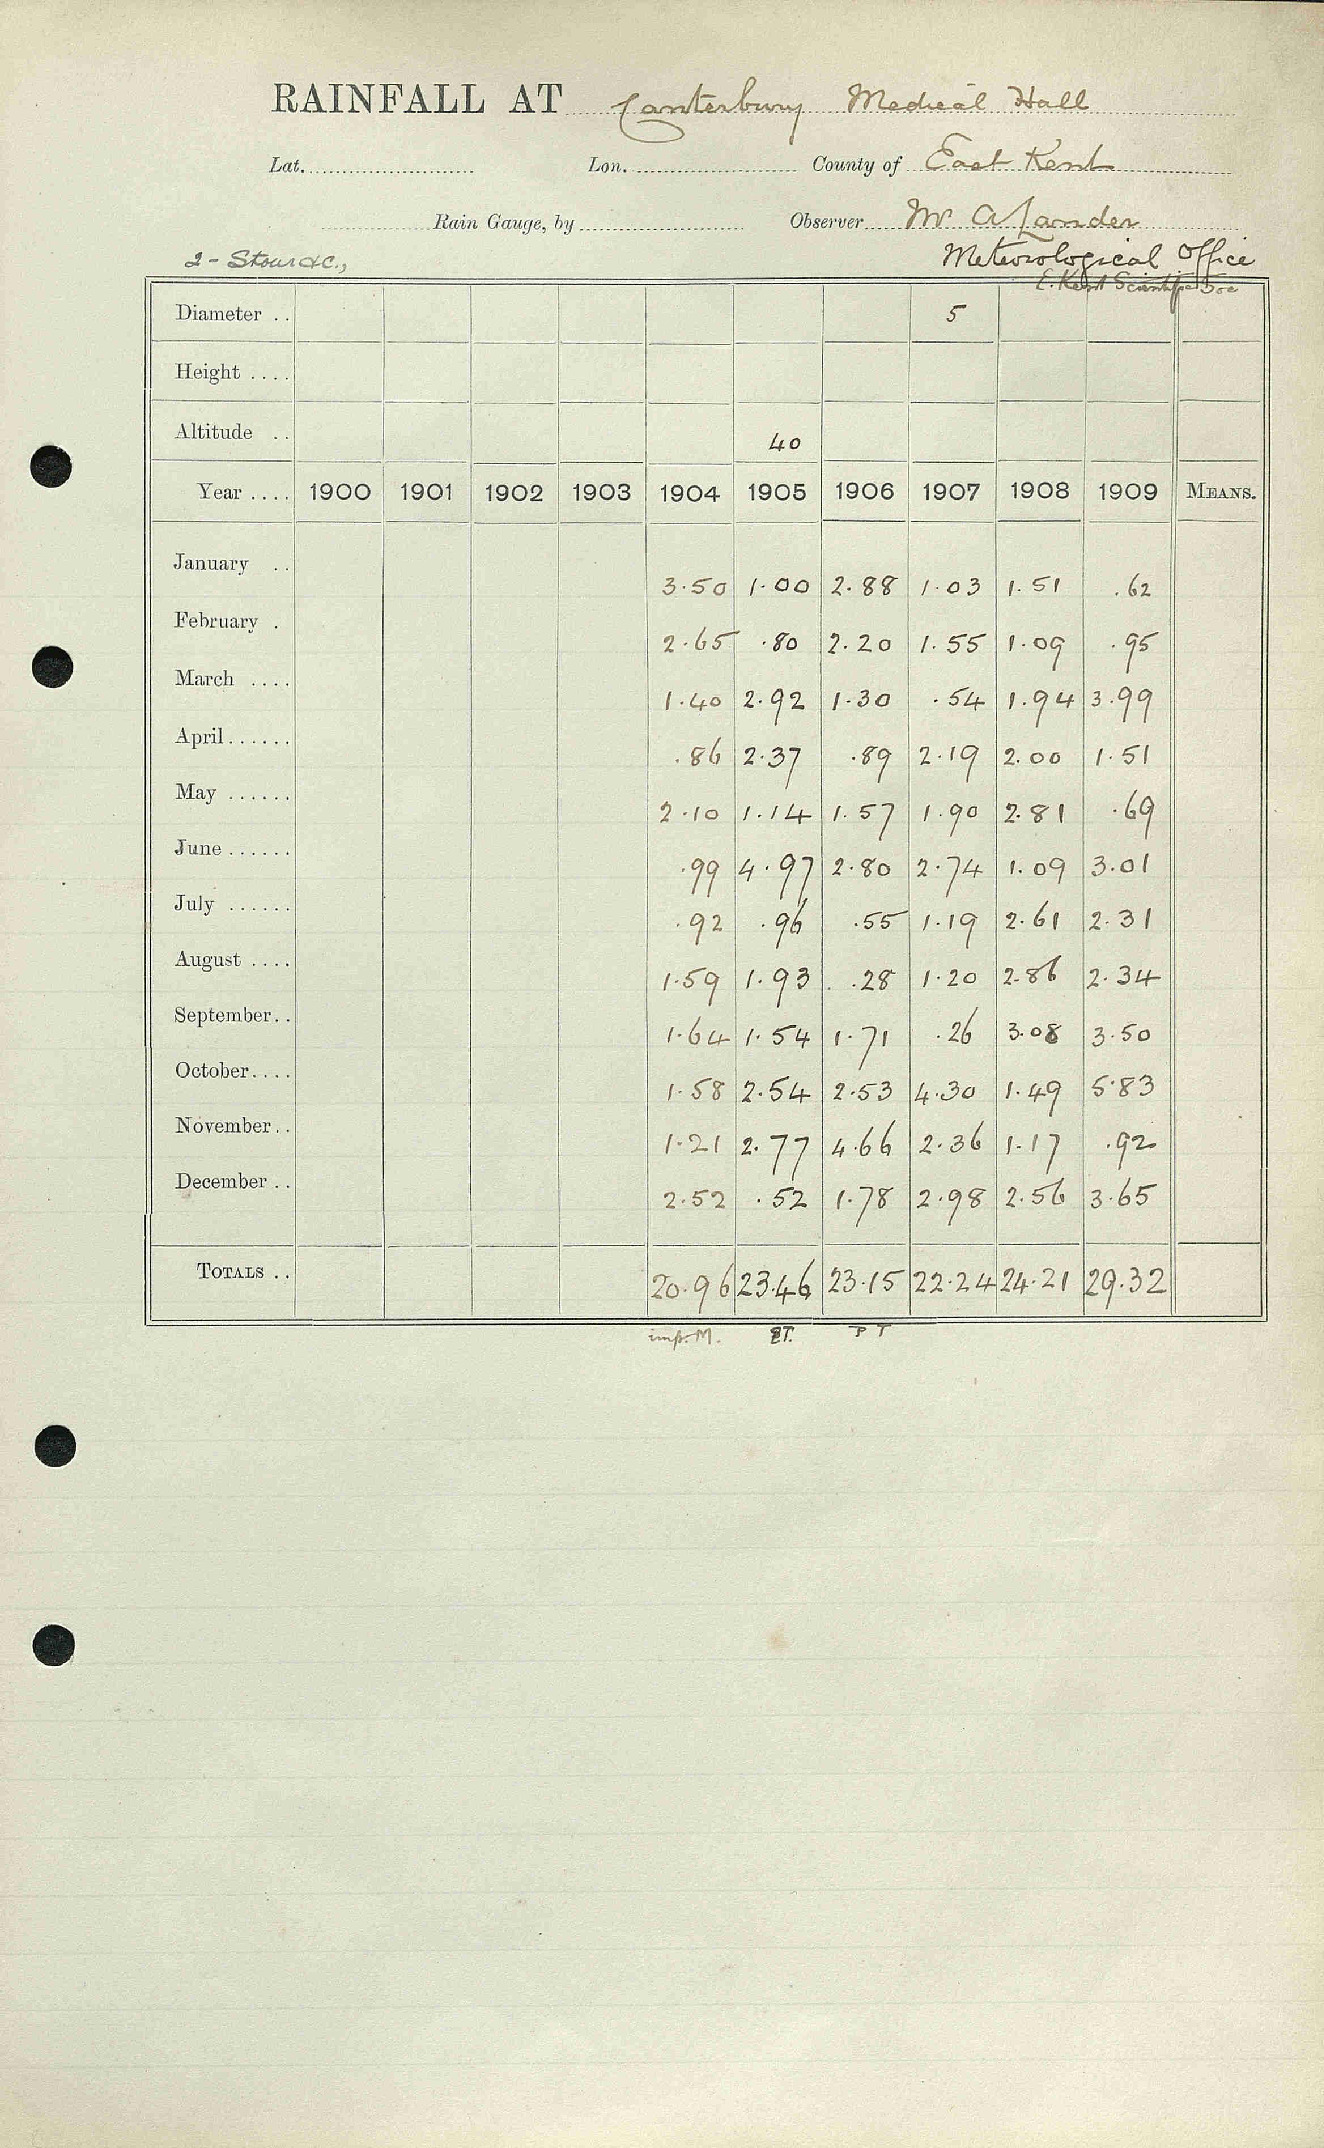 RAINFALL AT Canterbury Medical Hall
Lat. Lon. County of East Kent
Rain Gauge, by Observer Mr A Lander
2 - Stour &c., Meteorological Office
E. Kent Scientific Soc
Diameter .. 5
Height ....
Altitude .. 40
Year .... 1900 1901 1902 1903 1904 1905 1906 1907 1908 1909 MEANS.
January .. 3.50 1.00 2.88 1.03 1.51 .62
February . 2.65 .80 2.20 1.55 1.09 .95
March .... 1.40 2.92 1.30 .54 1.94 3.99
April...... .86 2.37 .89 2.19 2.00 1.51
May ...... 2.10 1.14 1.57 1.90 2.81 .69
June ...... .99 4.97 2.80 2.74 1.09 3.01
July ...... .92 .96 .55 1.19 2.61 2.31
August .... 1.59 1.93 .28 1.20 2.86 2.34
September.. 1.64 1.54 1.71 .26 3.08 3.50
October.... 1.58 2.54 2.53 4.30 1.49 5.83
November.. 1.21 2.77 4.66 2.36 1.17 .92
December .. 2.52 .52 1.78 2.98 2.56 3.65
TOTALS .. 20.96 23.46 23.15 22.24 24.21 29.32
imp. M. PT. PT